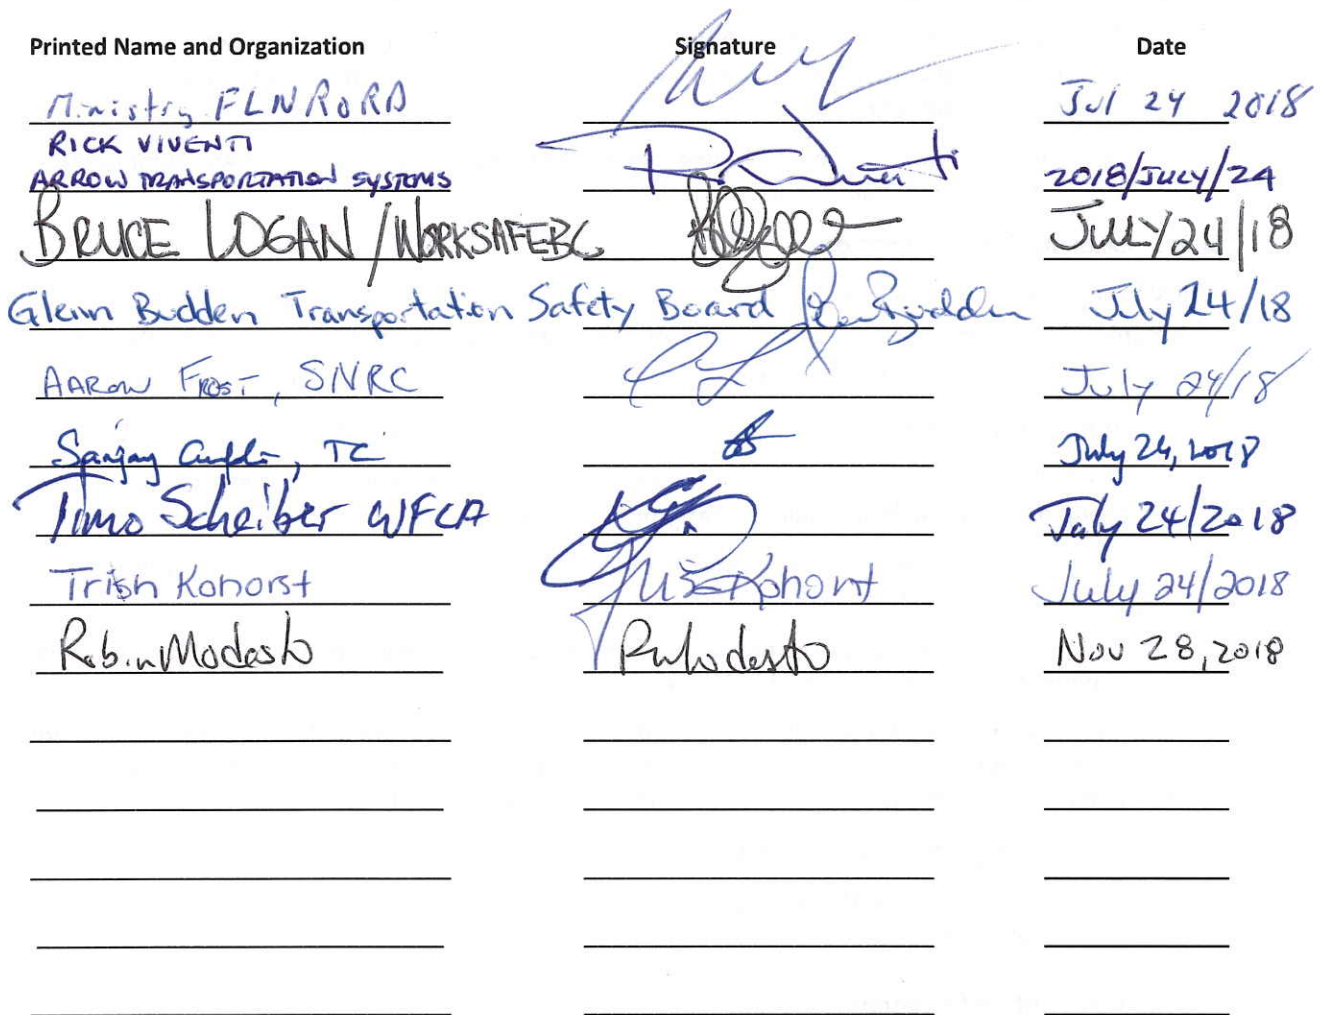 Printed Name and Organization Signature Date
Ministry FLNRORD Jul 24 2018
RICK VIVENTI
ARROW TRANSPORTATION SYSTEMS 2018/JULY/24
BRUCE LOGAN/WORKSAFEBC JULY/24/18
Glenn Budden Transportation Safety Board July 24/18
AARON FROST, SNRC July 24/18
Sanjay Gupta, TC July 24, 2018
Timo Scheiber WFCA July 24/2018
Trish Kohorst Trish Kohorst July 24/2018
Robin Modesto RModesto Nov 28, 2018